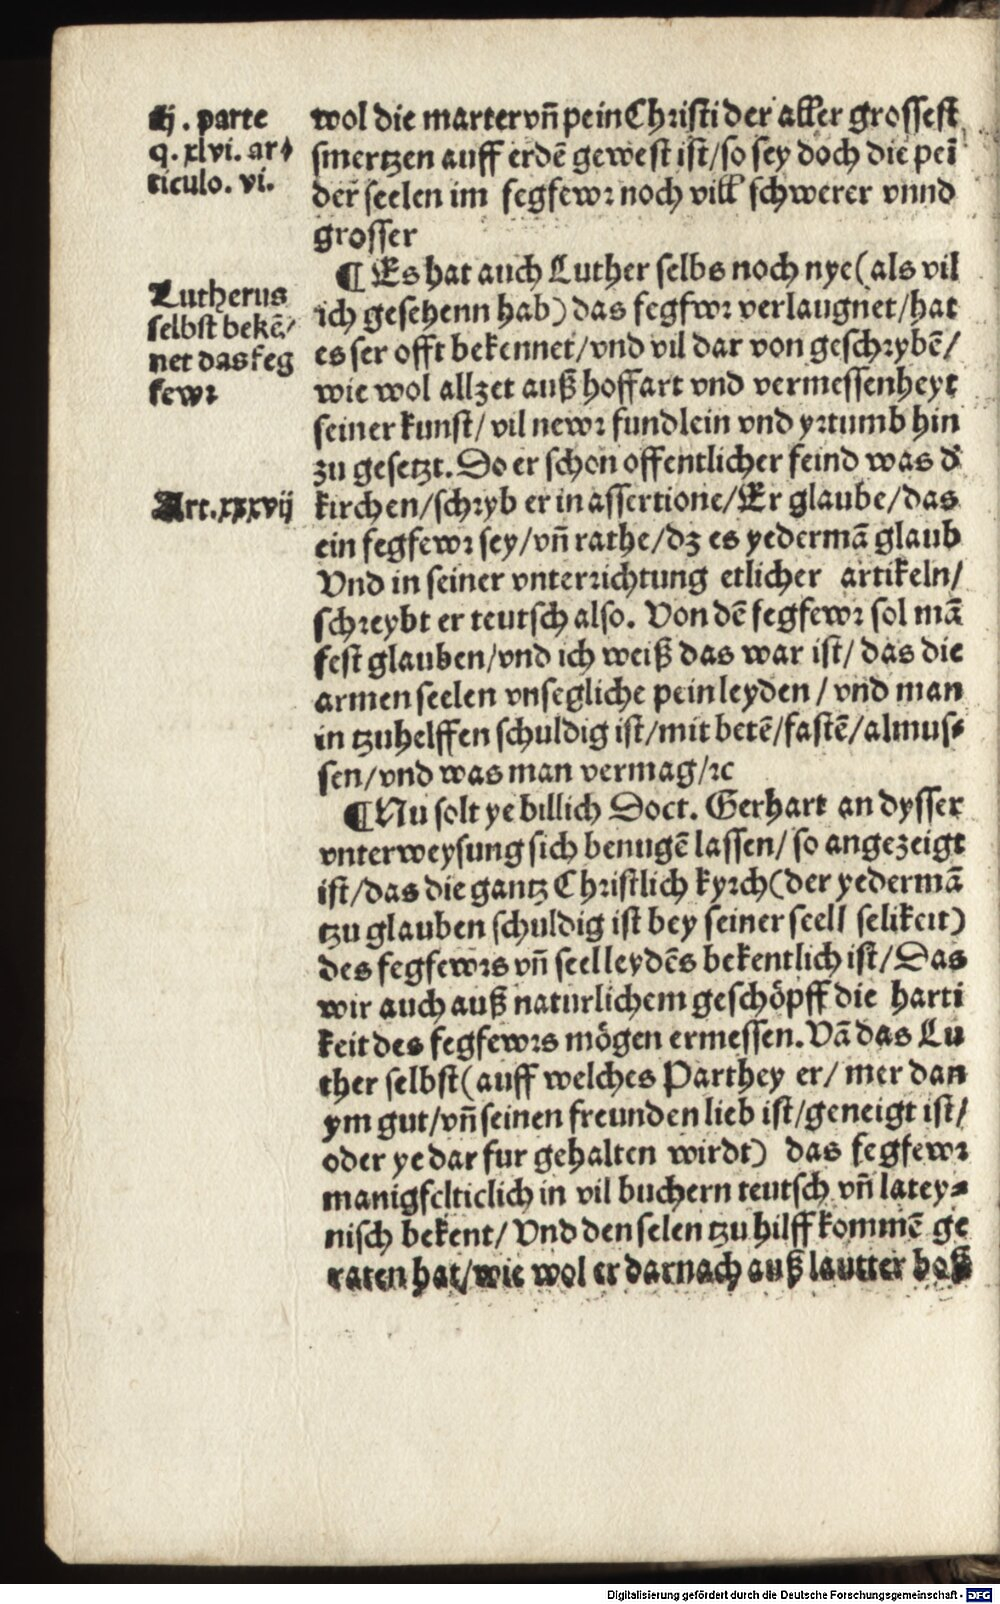 ij. parte
q. xlvi. ar⸗
ticulo. vi.
wol die marter vn̄ pein Christi der aller grossest
smertzen auff erdē gewest ist/so sey doch die peī
der seelen im fegfewr noch vill schwerer vnnd
grosser
Lutherus
selbst bekē/
net das feg
fewr
¶ Es hat auch Luther selbs noch nye (als vil
ich gesehenn hab) das fegfwr verlaugnet/hat
es ser offt bekennet/vnd vil dar von geschrybē/
wie wol allzet auß hoffart vnd vermessenheyt
seiner kunst/ vil newr fundlein vnd yrtumb hin
zu gesetzt. Do er schon offentlicher feind was d̕
Art. xxxvij
kirchen/schryb er in assertione/Er glaube/das
ein fegfewr sey/vn̄ rathe/dz es yedermā glaub
Vnd in seiner vnterrichtung etlicher artikeln/
schreybt er teutsch also. Von dē fegfewr sol mā
fest glauben/vnd ich weiß das war ist/ das die
armen seelen vnsegliche pein leyden / vnd man
in tzuhelffen schuldig ist/mit betē/fastē/almus⸗
sen/vnd was man vermag/ꝛc
¶ Nu solt ye billich Doct. Gerhart an dysser
vnterweysung sich benugē lassen/ so angezeigt
ist/das die gantz Christlich kyrch (der yedermā
tzu glauben schuldig ist bey seiner seell selikeit)
des fegfewrs vn̄ seelleydēs bekentlich ist/ Das
wir auch auß naturlichem geschöpff die harti
keit des fegfewrs mögen ermessen. Vā das Lu
ther selbst (auff welches Parthey er/ mer dan
ym gut/vn̄ seinen freunden lieb ist/geneigt ist/
oder ye dar fur gehalten wirdt) das fegfewr
manigfelticlich in vil buchern teutsch vn̄ latey⸗
nisch bekent/ Vnd den selen tzu hilff kommē ge
raten hat/wie wol er darnach auß lautter boß
Digitalisierung gefördert durch die Deutsche Forschungsgemeinschaft - DFG